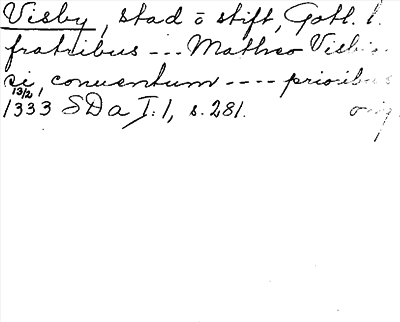 Visby, stad ō stift, Gotl. l.
fratribus --- Matheo Visbi
ci, conventum ---- prioribus
13/2 1333 SDa I:1, s. 281. orig.